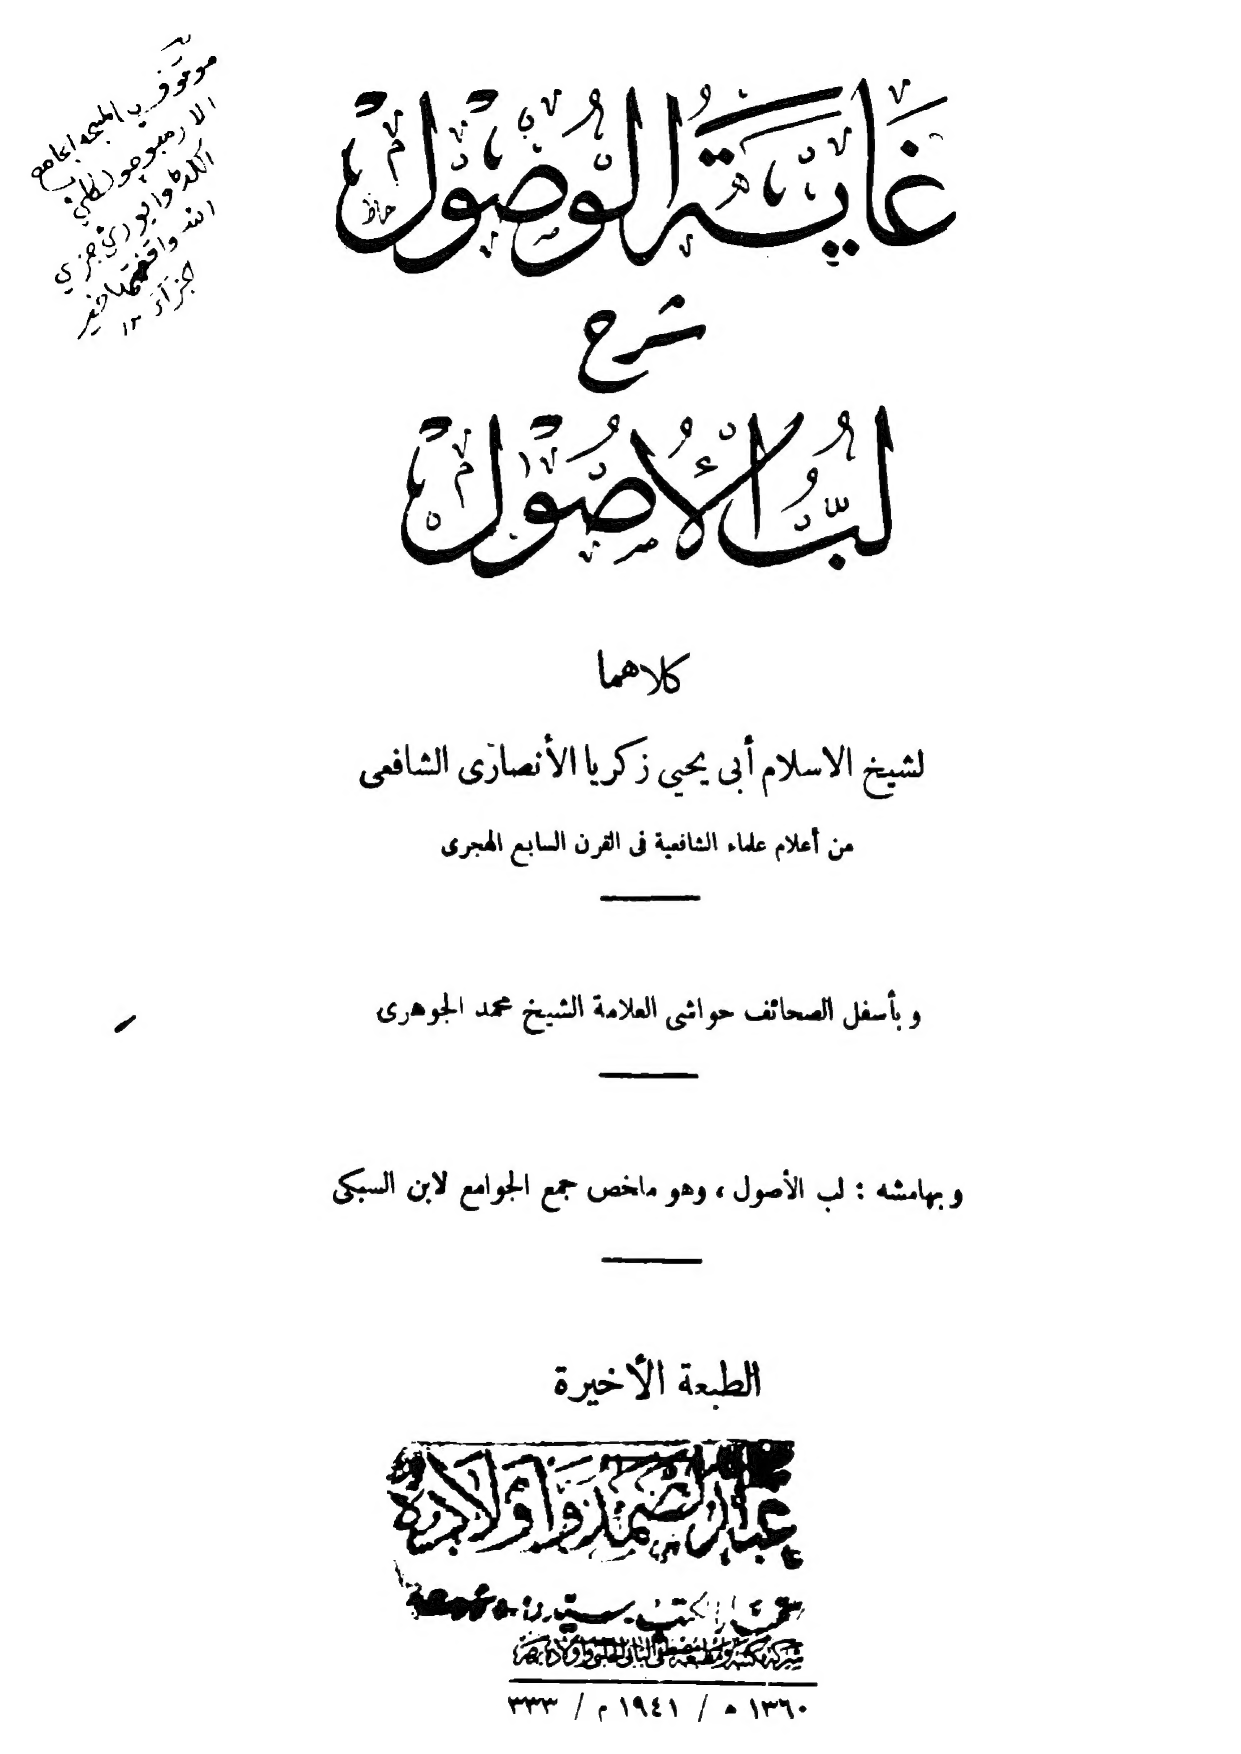 غَايَةُ الوُصُولْ
شرح
لُبُّ الأُصُولْ
كلاهما
لشيخ الاسلام أبى يحيى زكريا الأنصارى الشافعى
من أعلام علماء الشافعية فى القرن السابع الهجرى
وبأسفل الصحائف حواشى العلامة الشيخ محمد الجوهرى
وبهامشه : لب الأصول ، وهو ملخص جمع الجوامع لابن السبكى
الطبعة الأخيرة
عبد الصمد وأولاده
شركة مكتبة ومطبعة مصطفى البابى الحلبى وأولاده بمصر
١٣٦٠ ه / ١٩٤١ م / ٣٣٣